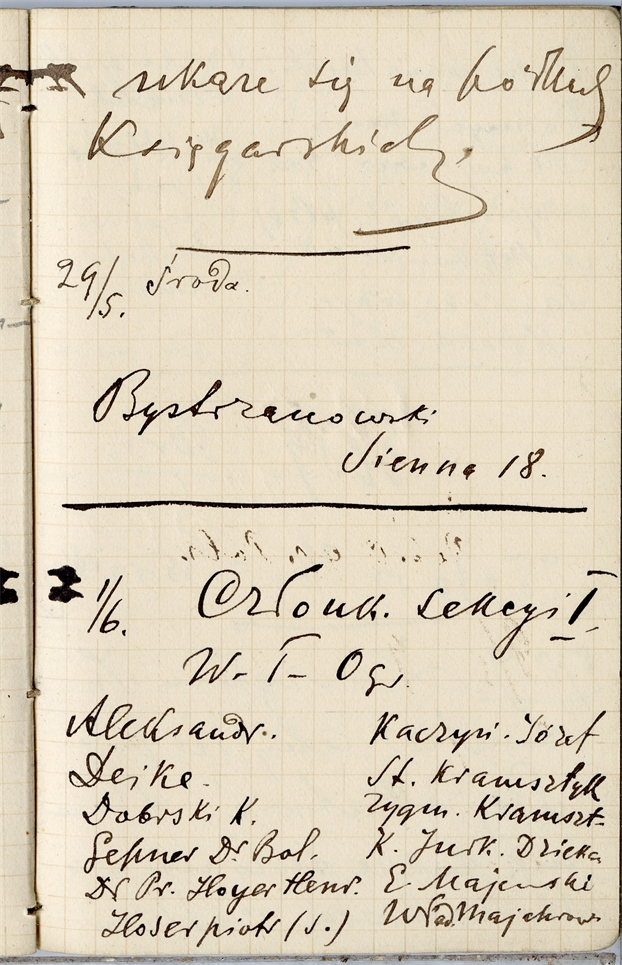 ukaże się na półkach
Księgarskich.
29/5. Środa.
Bystrzanowski
Sienna 18.
1/6. Członk. Sekcyi I
W. T. Ogr.
Aleksandr..
Deike.
Dobrski K.
Gepner Dr Bol.
Dr Pr. Hoyer Henr.
Hoser piotr (s.)
Kaczyń. Józef
St. Kramsztyk
Zygm. Kramszt-
K. Jurk. Dzieka
E. Majewski
Wład. Majchrow